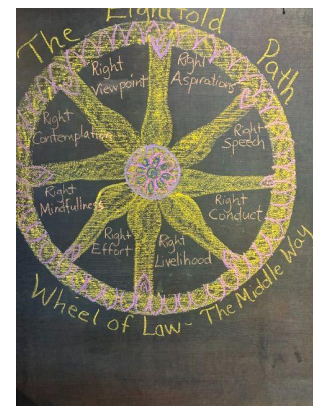 The Eightfold Path
Right
Viewpoint
Right
Aspirations
Right
Speech
Right
Conduct
Right
Livelihood
Right
Effort
Right
Mindfullness
Right
Contemplation
Wheel of Law - The Middle Way